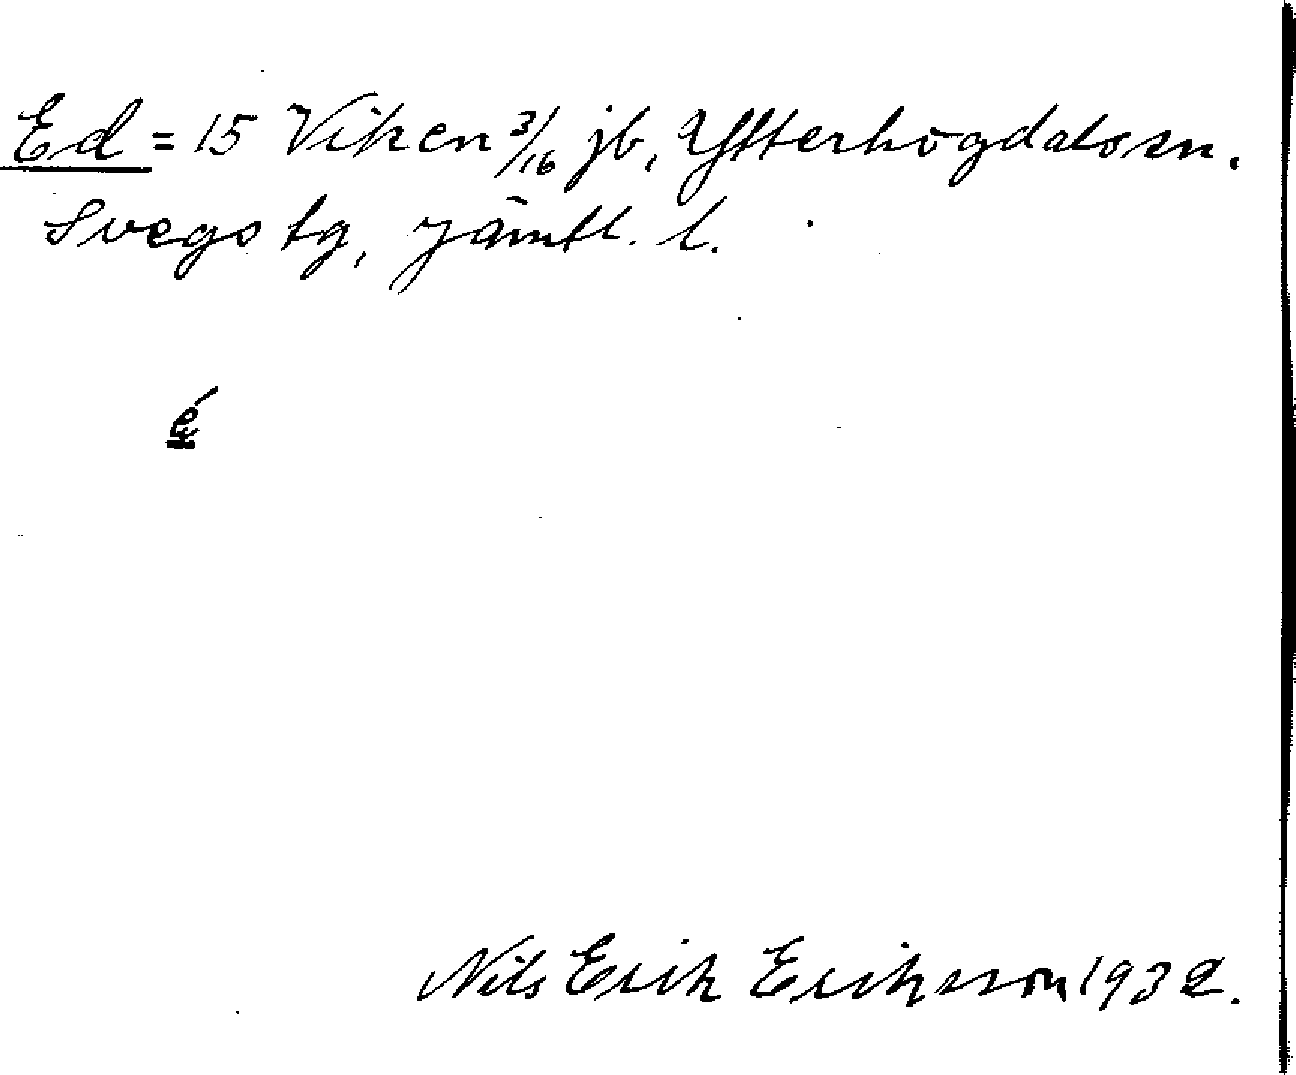 Ed = 15 Viken 3/16 jb, Ytterhogdals sn.
Svegs tg, Jämtl. l.
é
Nils Erik Eriksson 1932.